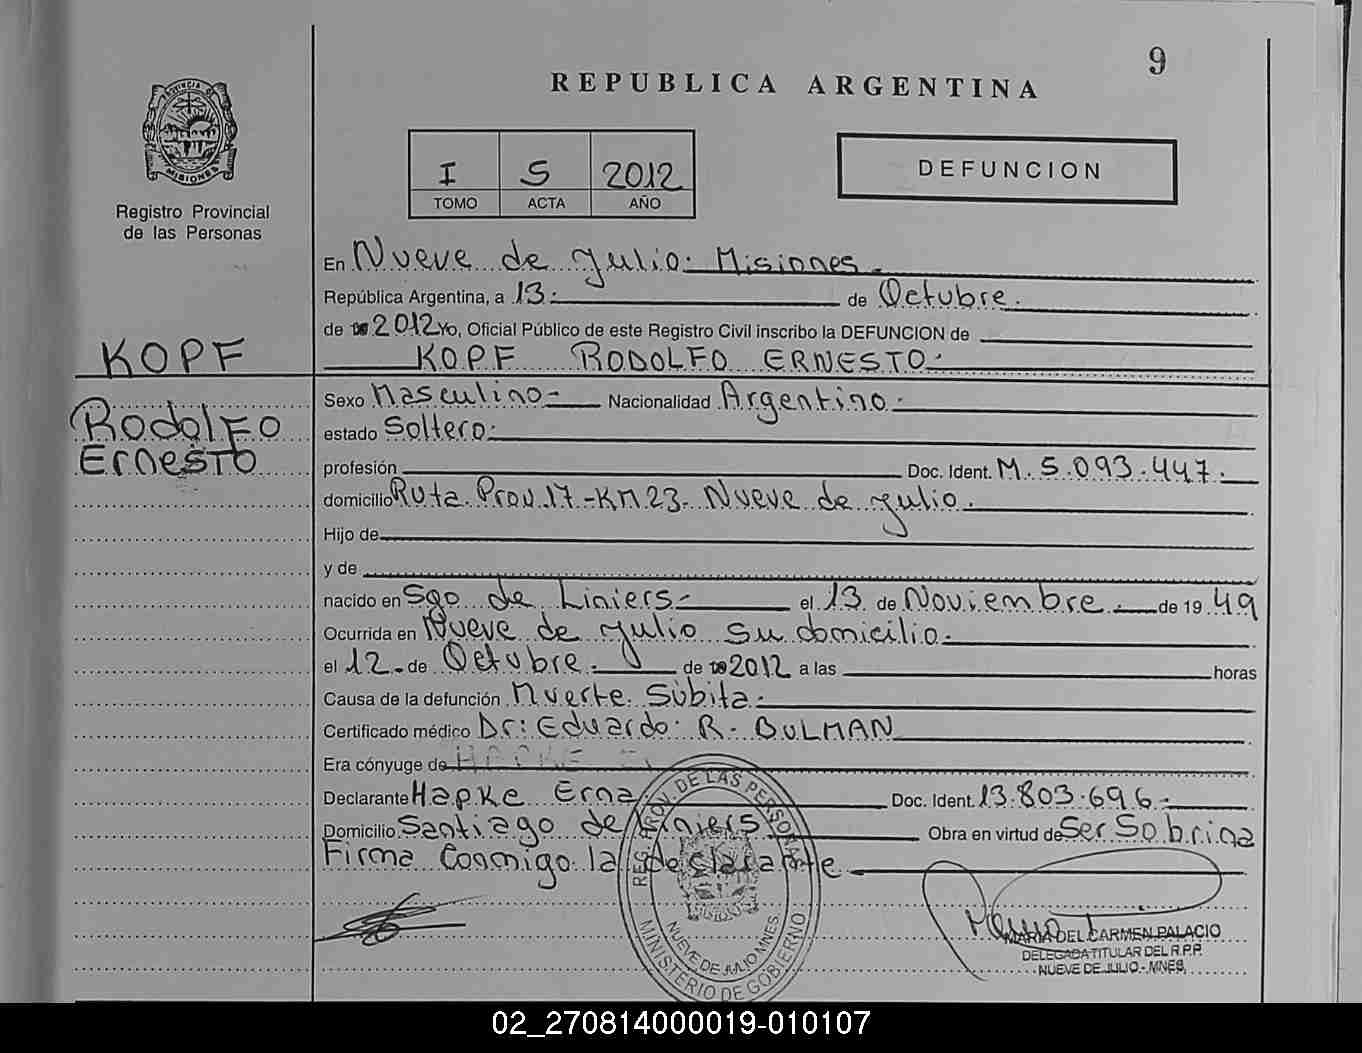 9
REPUBLICA ARGENTINA
PROVINCIA DE
MISIONES
Registro Provincial
de las Personas
I S 2012
TOMO ACTA AÑO
DEFUNCION
En Nueve de Julio: Misiones.
República Argentina, a 13: de Octubre.
de 2012 Yo, Oficial Público de este Registro Civil inscribo la DEFUNCION de
KOPF
KOPF RODOLFO ERNESTO:
Rodolfo
Ernesto
Sexo Masculino- Nacionalidad Argentino.-
estado Soltero:
profesión Doc. Ident. M. 5.093.447.
domicilio Ruta. Prov. 17-KM 23. Nueve de Julio.
Hijo de
y de
nacido en Sgo de Liniers- el 13 de Noviembre. de 19 49
Ocurrida en Nueve de Julio su domicilio.
el 12. de Octubre. de 2012 a las horas
Causa de la defunción Muerte Súbita.
Certificado médico Dr: Eduardo: R. BULMAN
Era cónyuge de
Declarante Hapke Erna Doc. Ident. 13.803.696.
Domicilio Santiago de Liniers Obra en virtud de Ser Sobrina
Firma Conmigo la declarante
REG. PROV. DE LAS PERSONAS
NUEVE DE JULIO MNES.
MINISTERIO DE GOBIERNO
MARIA DEL CARMEN PALACIO
DELEGADA TITULAR DEL R.P.P.
NUEVE DE JULIO - MNES.
02_270814000019-010107